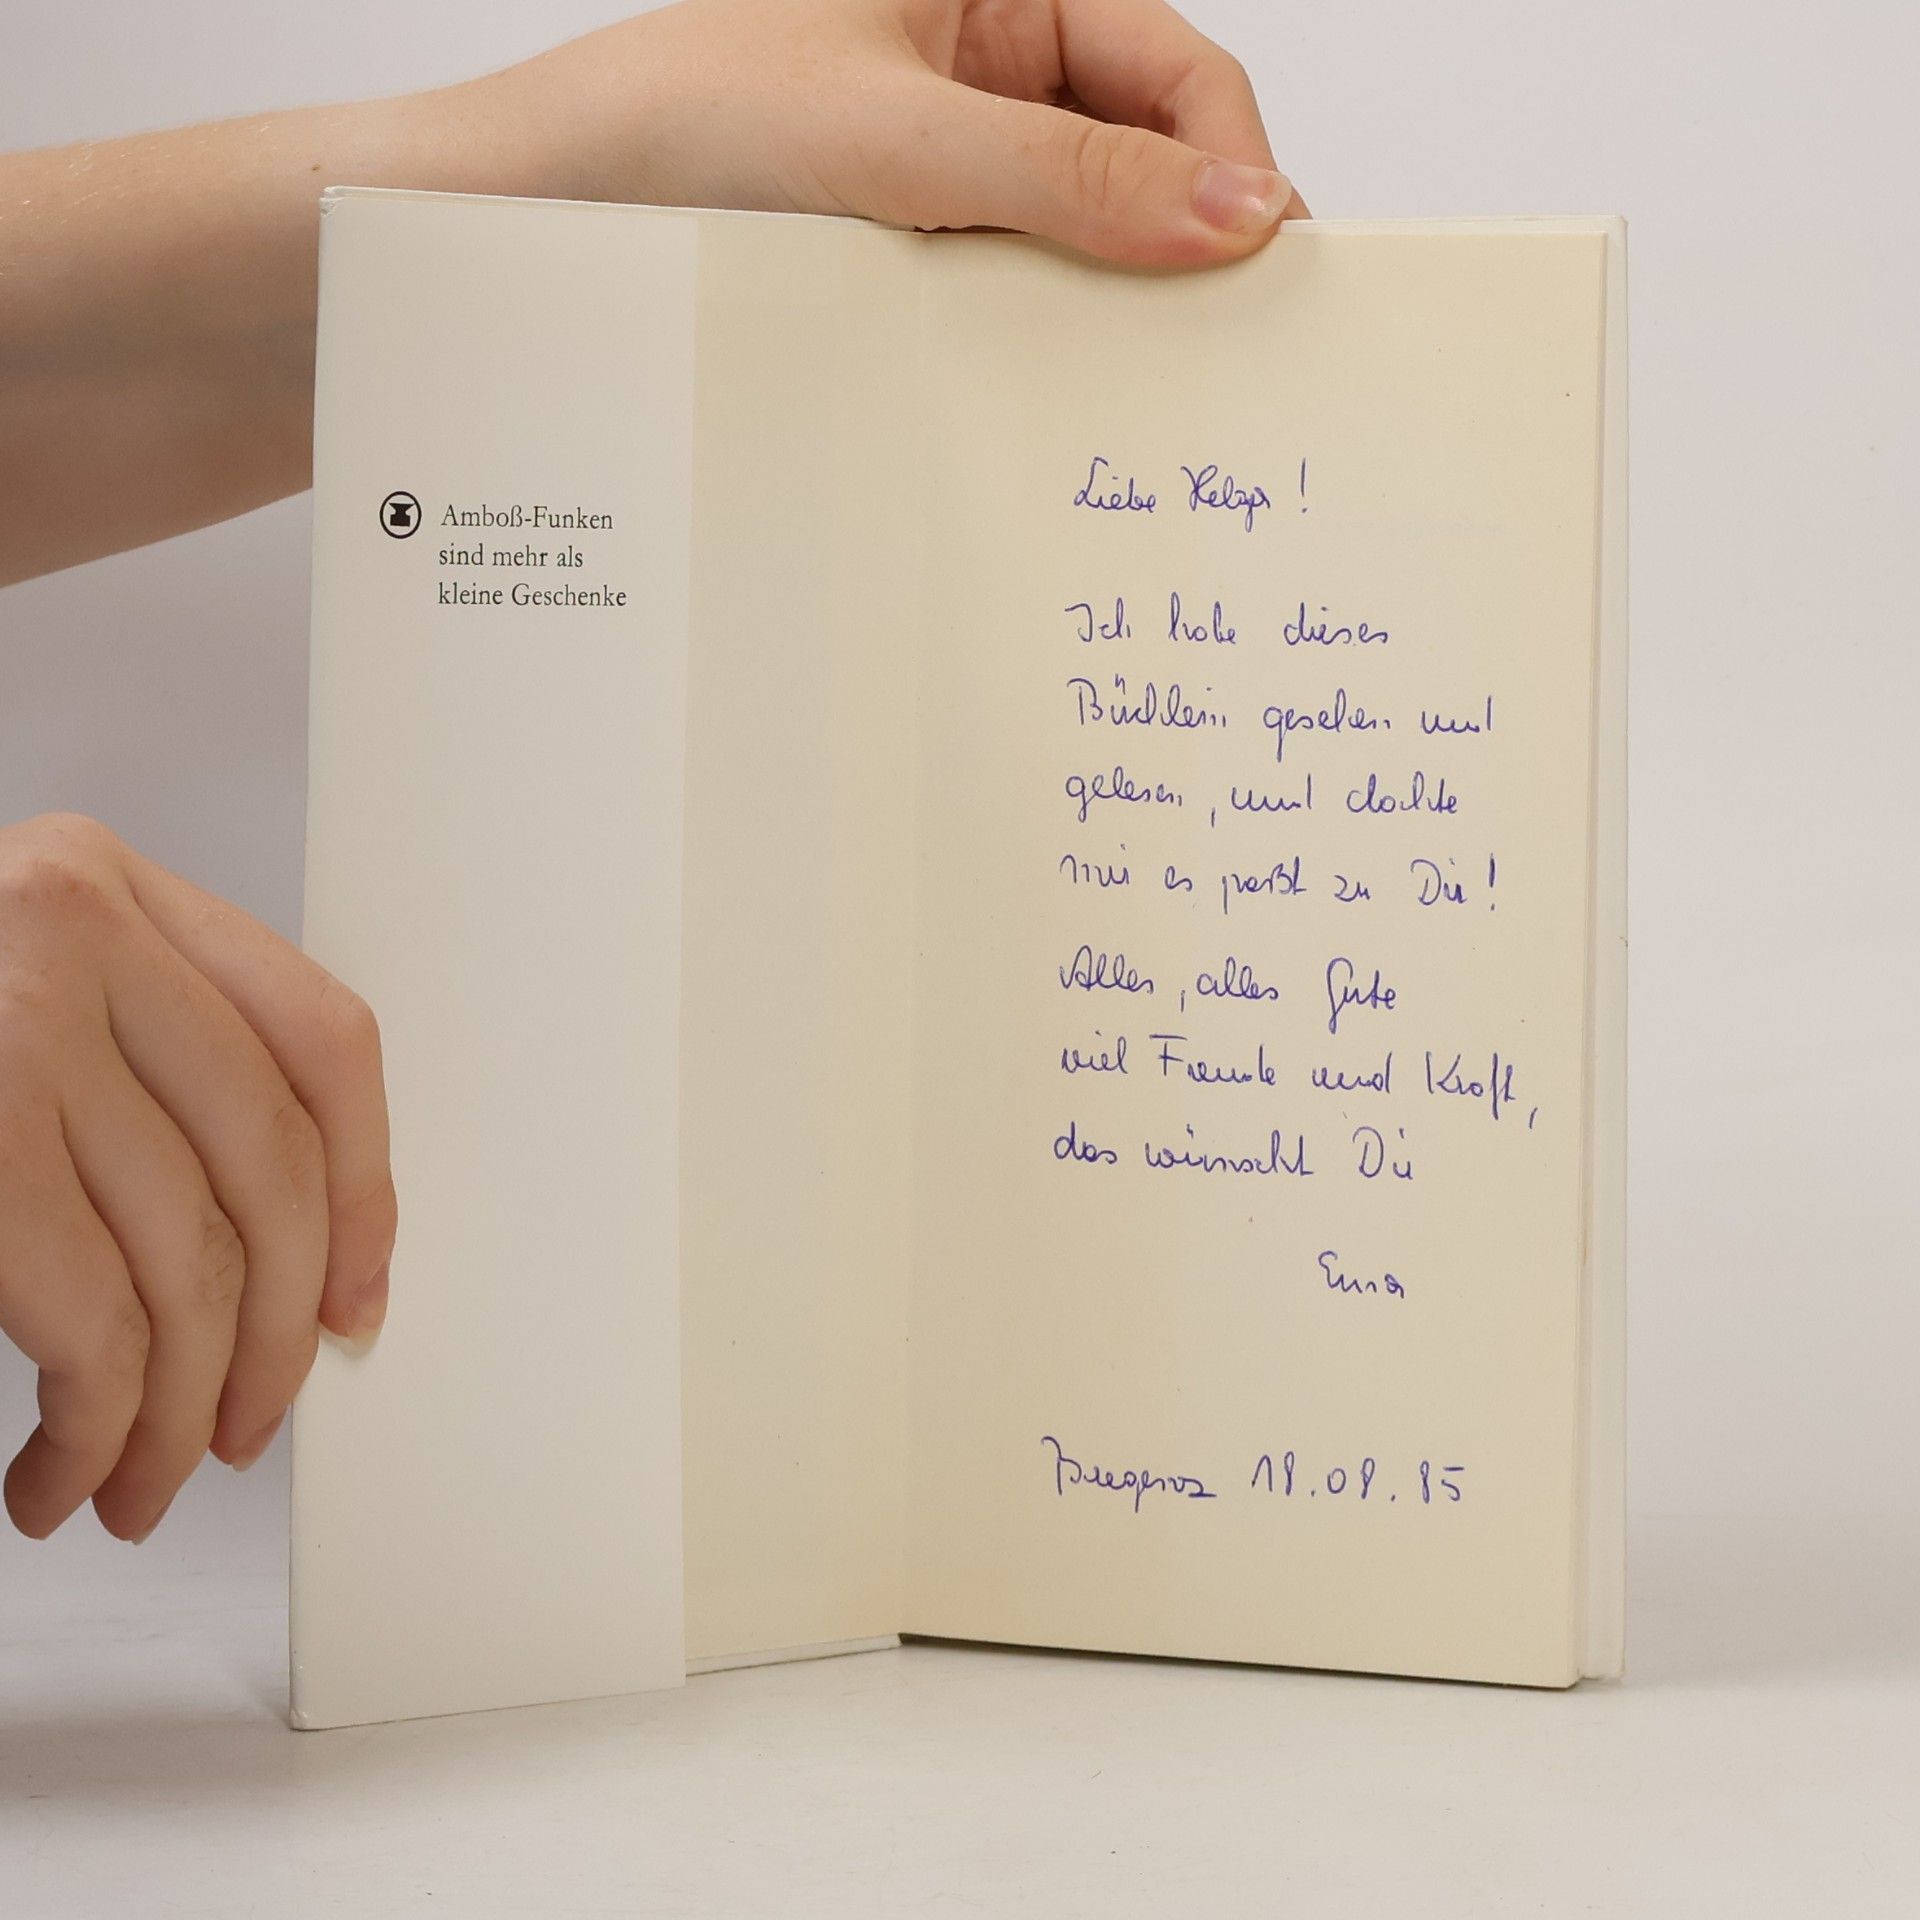 Amboß-Funken
sind mehr als
kleine Geschenke
Liebe Helga !
Ich habe dieses
Büchlein gesehen und
gelesen, und dachte
mir es paßt zu Dir !
Alles, alles Gute
viel Freude und Kraft,
das wünscht Dir
Erna
Bregenz 18.08.85